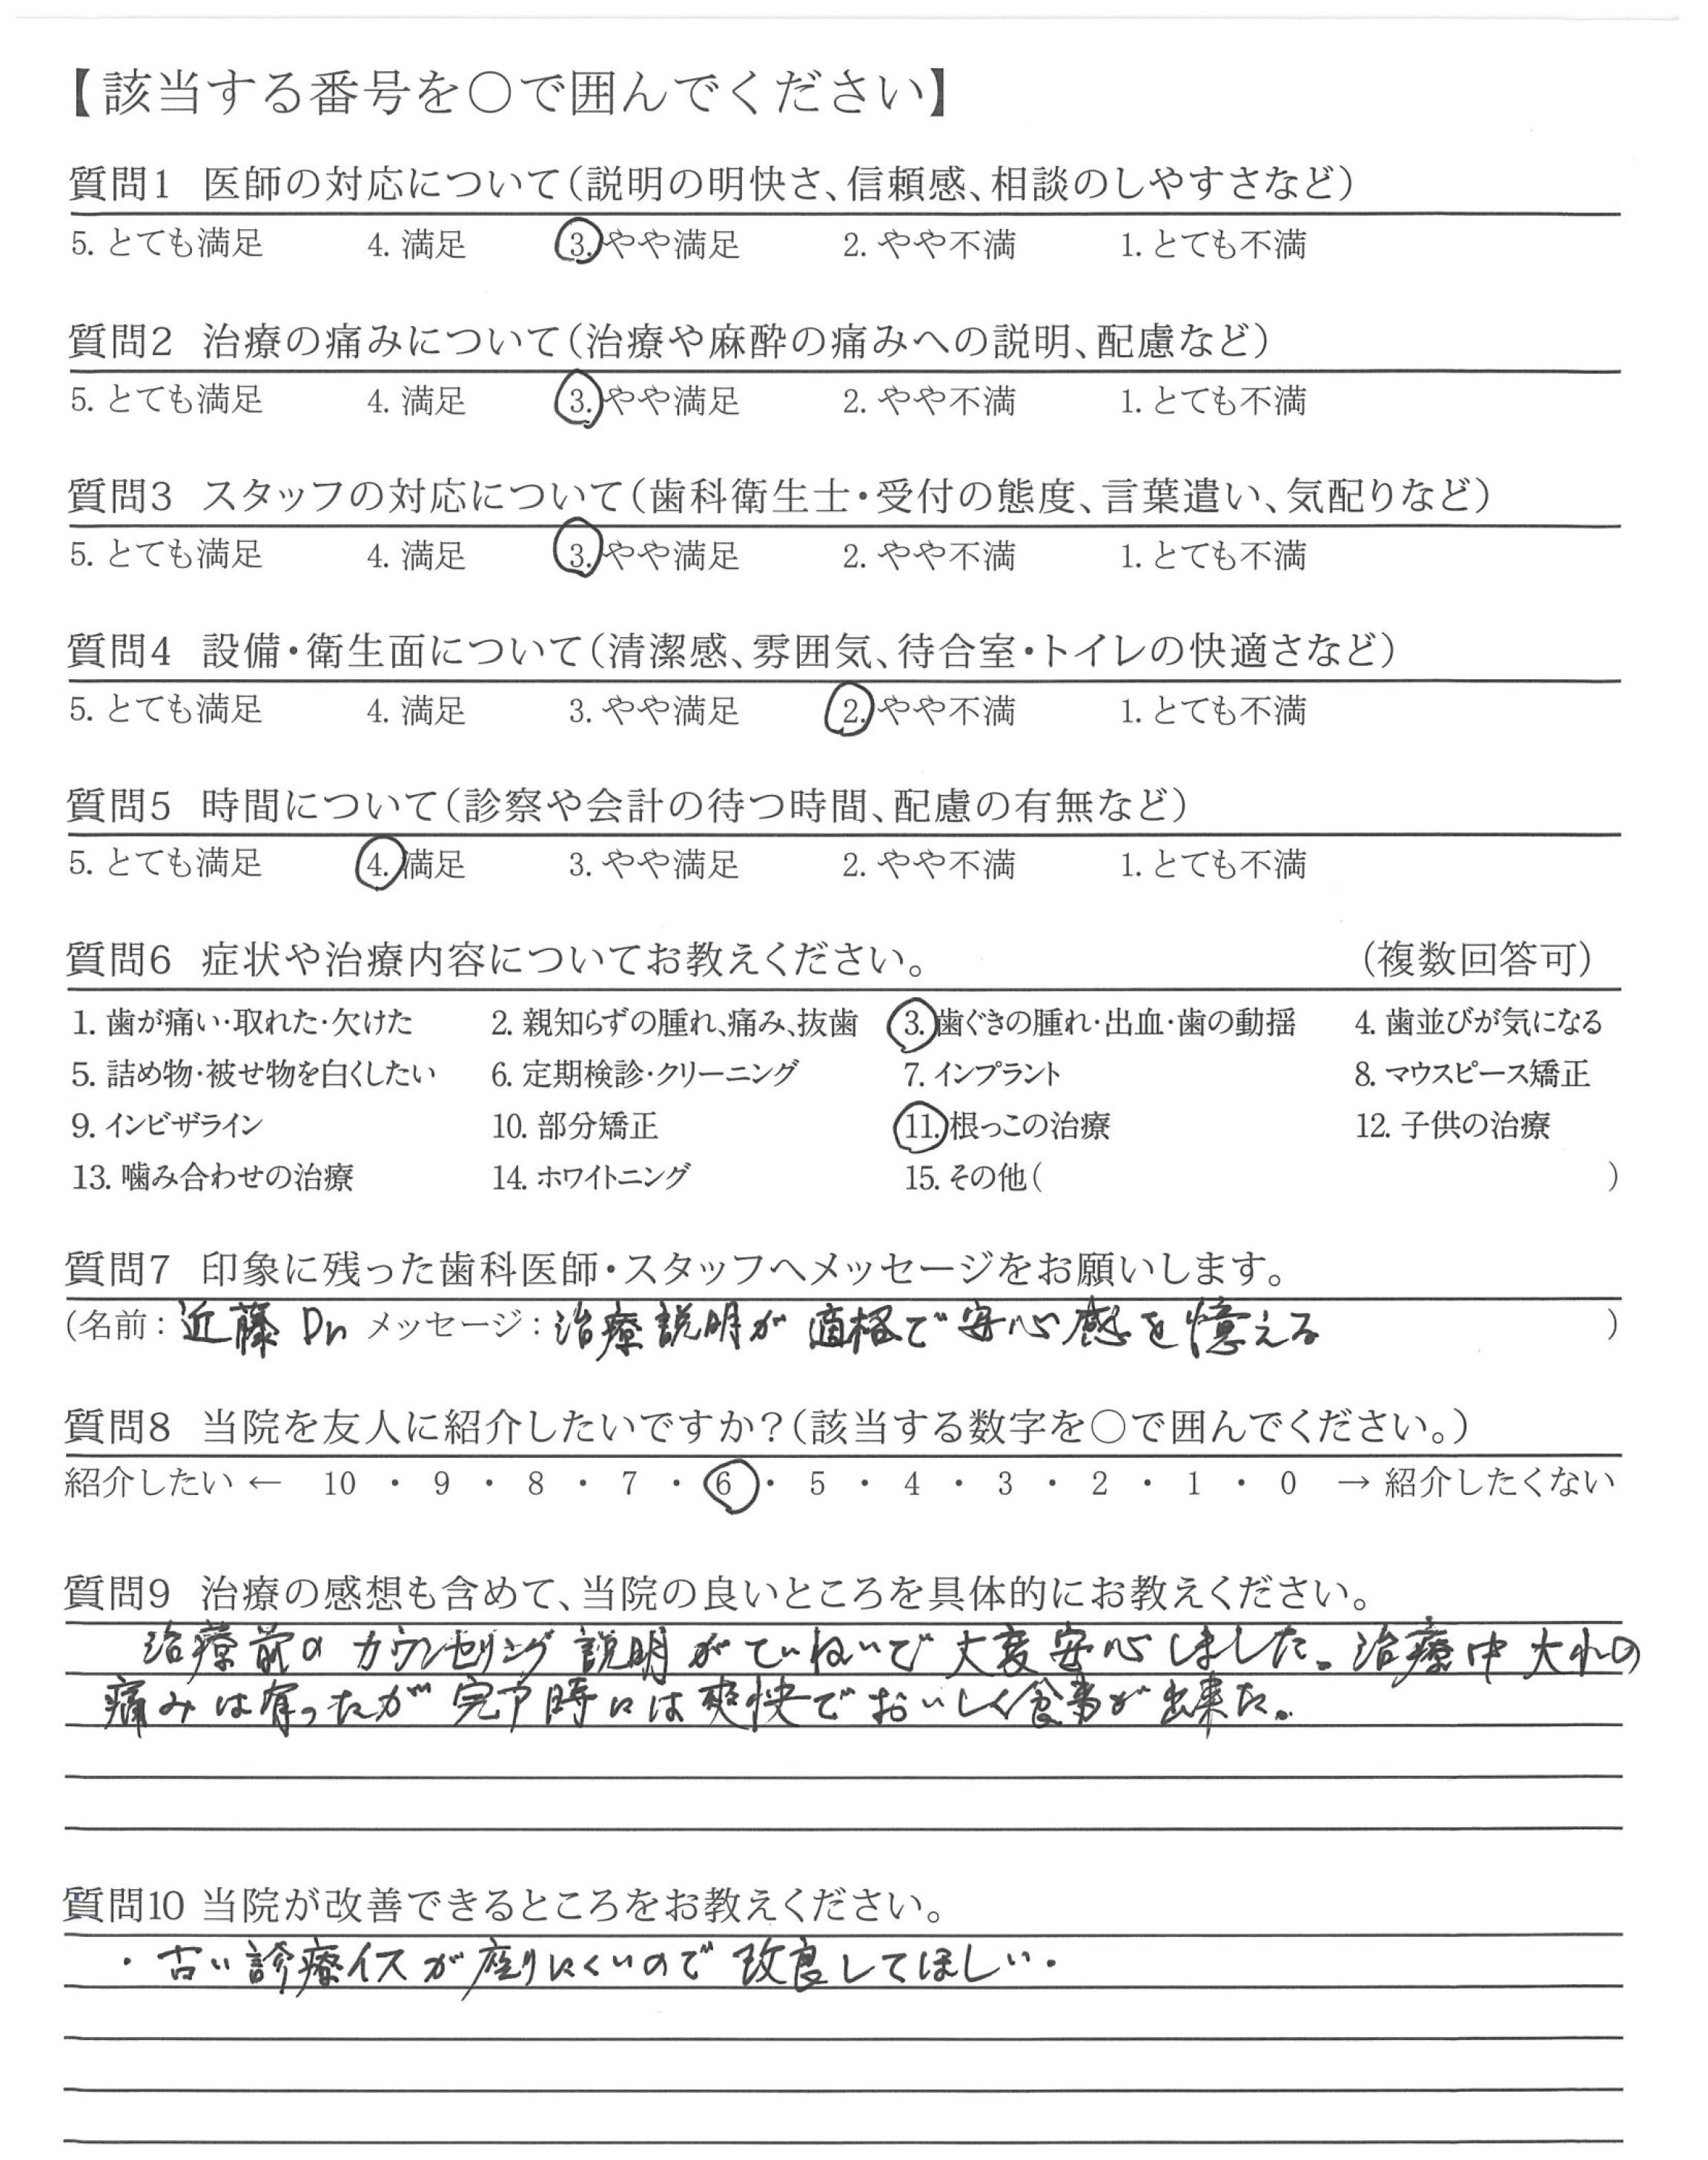 【該当する番号を○で囲んでください】
質問1 医師の対応について(説明の明快さ、信頼感、相談のしやすさなど)
5. とても満足 4. 満足 3. やや満足 2. やや不満 1. とても不満
質問2 治療の痛みについて(治療や麻酔の痛みへの説明、配慮など)
5. とても満足 4. 満足 3. やや満足 2. やや不満 1. とても不満
質問3 スタッフの対応について(歯科衛生士・受付の態度、言葉遣い、気配りなど)
5. とても満足 4. 満足 3. やや満足 2. やや不満 1. とても不満
質問4 設備・衛生面について(清潔感、雰囲気、待合室・トイレの快適さなど)
5. とても満足 4. 満足 3. やや満足 2. やや不満 1. とても不満
質問5 時間について(診察や会計の待つ時間、配慮の有無など)
5. とても満足 4. 満足 3. やや満足 2. やや不満 1. とても不満
質問6 症状や治療内容についてお教えください。 (複数回答可)
1. 歯が痛い・取れた・欠けた 2. 親知らずの腫れ、痛み、抜歯 3. 歯ぐきの腫れ・出血・歯の動揺 4. 歯並びが気になる
5. 詰め物・被せ物を白くしたい 6. 定期検診・クリーニング 7. インプラント 8. マウスピース矯正
9. インビザライン 10. 部分矯正 11. 根っこの治療 12. 子供の治療
13. 噛み合わせの治療 14. ホワイトニング 15. その他( )
質問7 印象に残った歯科医師・スタッフへメッセージをお願いします。
(名前: 近藤 Dr メッセージ: 治療説明が適格で安心感を憶える )
質問8 当院を友人に紹介したいですか?(該当する数字を○で囲んでください。)
紹介したい ← 10 ・ 9 ・ 8 ・ 7 ・ 6 ・ 5 ・ 4 ・ 3 ・ 2 ・ 1 ・ 0 → 紹介したくない
質問9 治療の感想も含めて、当院の良いところを具体的にお教えください。
治療前のカウンセリング説明がていねいで大変安心しました。治療中大れの
痛みは有ったが完了時には爽快でおいしく食事が出来た。
質問10 当院が改善できるところをお教えください。
・古い診療イスが座りにくいので改良してほしい.